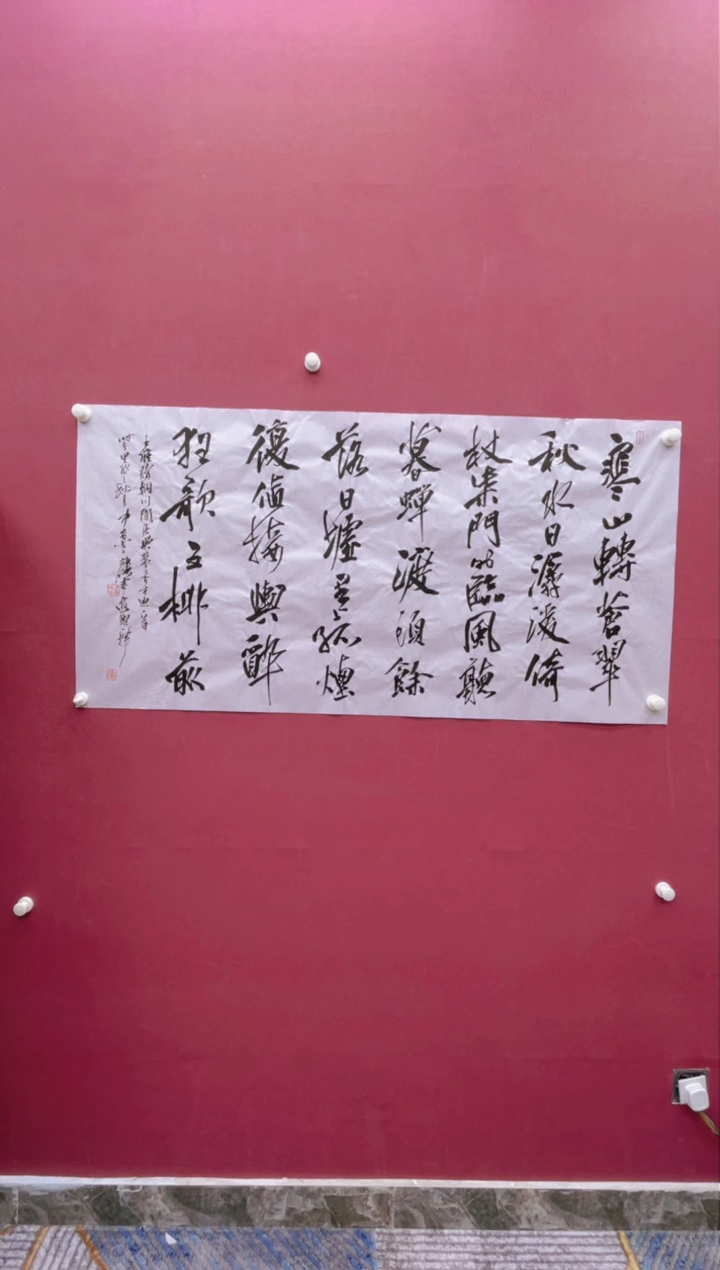 寒山轉蒼翠
秋水日潺湲倚
杖柴門外臨風聽
暮蟬渡頭餘
落日墟里上孤煙
復值接輿醉
狂歌五柳前
王維詩輞川閑居贈裴秀才迪一首